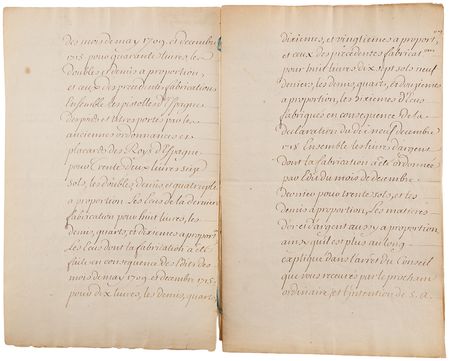 des mois de may 1709. et decembre
1715 pour quarante livres les
doubles et demis a proportion,
et ceux des precedentes fabrications
Ensemble les pistolles d'Espagne
des poids et titres portés par les
anciennes ordonnances et
placards des Roys d'Espagne
pour trente deux livres seize
sols, les doubles, demis et quatruple
a proportion Les Ecus de la derniere
fabrication pour huit livres, les
demis, quarts, et dixiemes a proport.
les Ecus dont la fabrication a été
faite en consequence des Edits des
mois de may 1709. et decembre 1715.
pour dix livres, les demis, quarts
dixiemes, et vingtiemes a proport.on
et ceux des precedentes fabricat.ons
pour huit livres dix sept sols neuf
deniers, les demis, quarts, et dixiemes
a proportion, les sixiemes d'Ecus
fabriqués en consequence de la
declaration du dix neuf decembre
Ensemble les livres d'argent
dont la fabrication a été ordonnée
par Edit du mois de decembre
dernier pour trente sols, et les
demis a proportion. Les matieres
d'or et d'argent aussy a proportion
ainsy qu'il est plus au long
expliqué dans l'arrest du Conseil
que vous recevrés par le prochain
ordinaire, et l'intention de S. A.